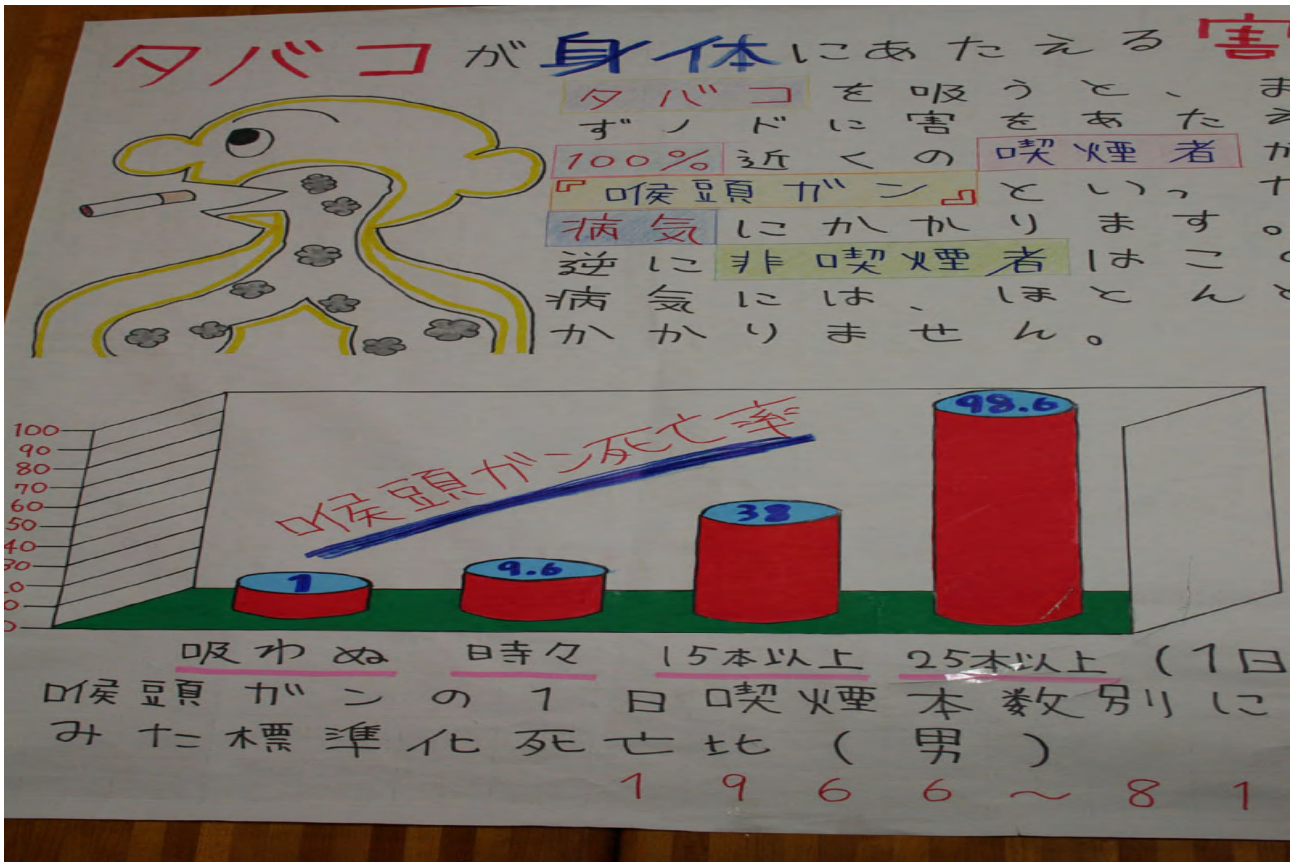 タバコが身体にあたえる害
タバコを吸うと、ま
ずノドに害をあたえ
100%近くの喫煙者が
『喉頭ガン』といった
病気にかかります。
逆に非喫煙者はこの
病気には、ほとんど
かかりません。
100
90
80
70
60
50
40
30
20
10
0
喉頭ガン死亡率
1
9.6
38
98.6
吸わぬ 時々 15本以上 25本以上 (1日
喉頭ガンの1日喫煙本数別に
みた標準化死亡比(男)
1966〜81